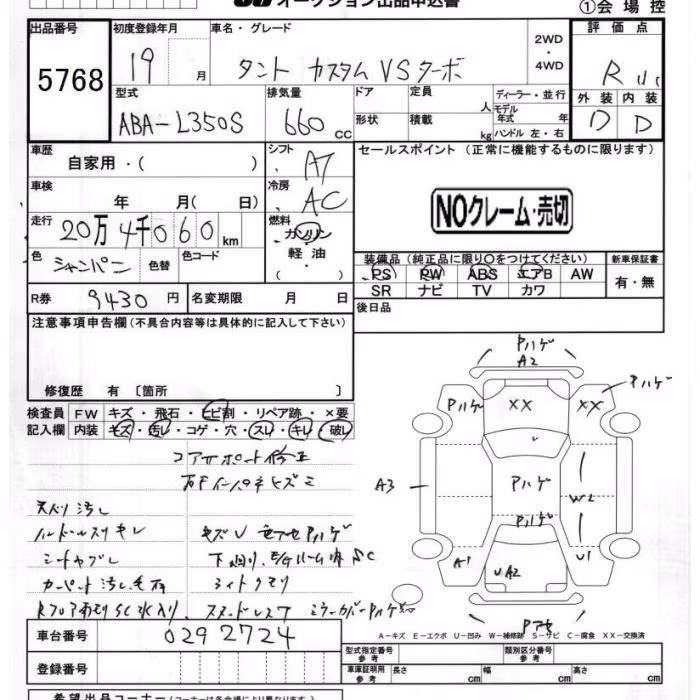 オークション出品申込書
①会場控
出品番号
5768
初度登録年月
19 月
車名・グレード
タント カスタム VSターボ
2WD
・
4WD
評価点
R
型式
ABA-L350S
排気量
660 cc
ドア
形状
定員
人
積載
kg
ディーラー・並行
モデル
年式 年
ハンドル 左・右
外装 内装
D D
車歴
自家用・( )
シフト
AT
セールスポイント (正常に機能するものに限ります)
車検
年 月( 日)
冷房
AC
NOクレーム・売切
走行
20万4千060 km
燃料
ガソリン
軽油
・( )
色
シャンパン
色替
色コード
装備品(純正品に限り○をつけてください)
PS RW ABS エアB AW
SR ナビ TV カワ
新車保証書
有・無
R券
9430 円
名変期限 月 日
後日品
注意事項申告欄(不具合内容等は具体的に記入して下さい)
修復歴 有 〔箇所 〕
検査員
記入欄
FW キズ・飛石・ヒビ割・リペア跡・×要
内装 キズ・汚レ・コゲ・穴・スレ・キレ・破レ
コアサポート修正
天バリ汚レ
ハンドルスリキレ
シートヤブレ
カーペット汚レ
ライトクモリ
スタッドレス7 ミラーカバーPハゲ
Pハゲ
A2
Pハゲ
XX
XX
Pハゲ
A3
Pハゲ
W2
Pハゲ
A1
UA2
U1
車台番号
0292724
A-キズ E-エクボ U-凹み W-補修跡 S-サビ C-腐食 XX-交換済
登録番号
型式指定番号
参考
類別区分番号
参考
車庫証明用
参考
長さ cm
幅 cm
高さ cm
希望出品コーナー